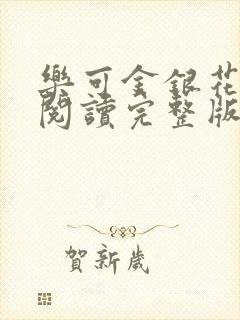 樂可金銀花
閱讀完整版
賀新歲